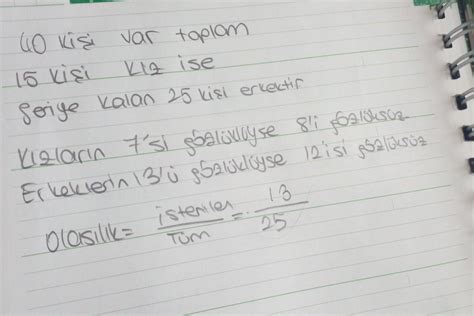 40 kişi var toplam
15 kişi kız ise
Geriye kalan 25 kişi erkektir
Kızların 7'si gözlüklüyse 8'i gözlüksüz
Erkeklerin 13'ü gözlüklüyse 12'isi gözlüksüz
Olasılık = istenilen / Tüm = 13 / 25